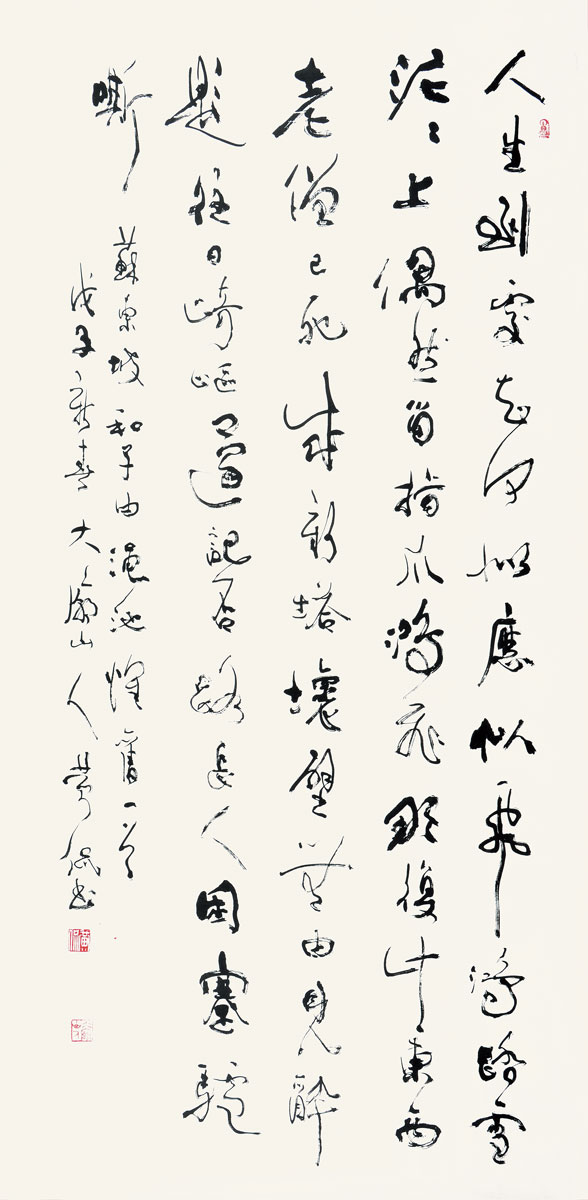 人生到處知何似應似飛鴻踏雪
泥々上偶然留指爪鴻飛那復計東西
老僧已死成新塔壞壁無由見
題往日崎嶇還記否路長人困蹇驢
嘶 蘇東坡和子由澠池懷舊一首
戊子新春大廟山人書